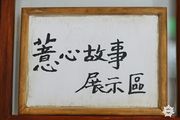 薏心故事
展示區